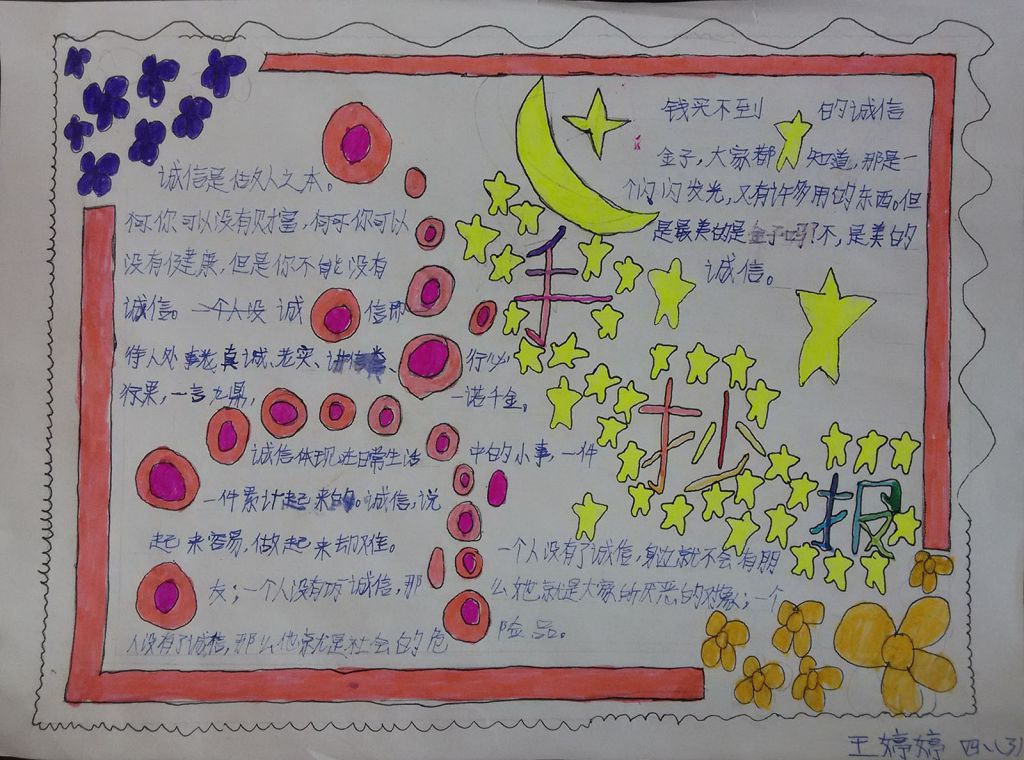 钱买不到 的诚信
金子,大家都 知道,那是一
个闪闪发光,又有许多用的东西。但
是最美的是金子吗?不,是美的
诚信。
手
抄
报
诚信是做人之本。
你可以没有财富,你可以
没有健康,但是你不能没有
诚信。一个人没 诚 信即
待人处事 真诚、老实、 行必
行果,一言九鼎, 一诺千金。
诚信体现 日常生活 中的小事,一件
一件累计起来的。诚信,说
起来容易,做起来却难。
一个人没有了诚信,身边就不会有朋
友;一个人没有 诚信,那 么他就是大家所厌恶的对象;一个
人没有了诚信,那么他就是社会的危 险品。
王婷婷 四、(3)